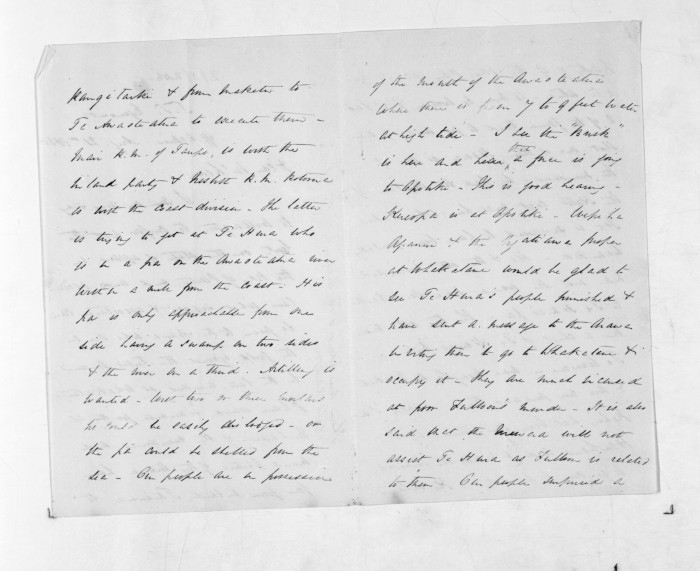 Rangitaiki & from Maketu to
Te Awa o te atua to execute them -
Mair R.M. of Taupo, is with the
inland party & Nesbitt R.M. Rotorua
is with the coast division - The latter
is trying to get at Te Hura who
is in a pa on the Awa o te atua river
within a mile from the coast - His
pa is only approachable from one
side having a swamp on two sides
& the river on a third. Artillery is
wanted - With two or three
he could be easily dislodged - or
the pa could be shelled from the
sea - Our people are in possession
of the mouth of the Awa o te atua
where there is from 7 to 9 feet water
at high tide - I see the "Huntress"
is here and hear that a force is going
to Opotiki - This is good hearing -
Kereopa is at Opotiki -
Apanui & the Ngatiawa proper
at Whakatane would be glad to
see Te Hura's people punished &
have sent a message to the Arawa
inviting them to go to Whakatane &
occupy it - They are much incensed
at poor Fulloon's murder - It is also
said that the Urewera will not
assist Te Hura as Fulloon is related
to them. Our people surprised a